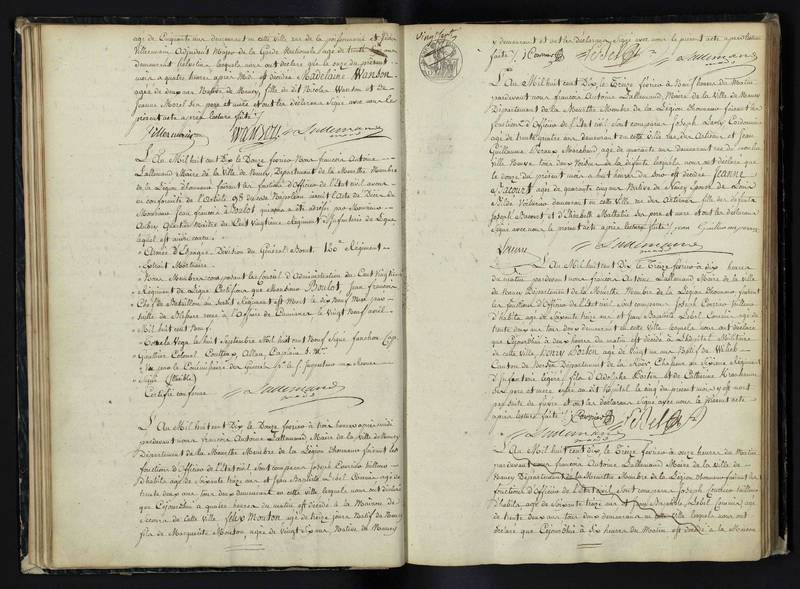 age de Cinquante ans demeurant en cette Ville rue de la poissonnerie et
Villermain Adjudant Major de la Garde Nationale age de trente
demeurant lesquels nous ont déclaré que le onze du présent
mois a quatre heures après Midi est décédée Madelaine Wanson
agée de deux ans Native de Nancy, fille de Nicolas Wanson et de
Jeanne Morel ses pere et mere et ont les déclarans Signé avec nous le
présent acte après lecture faite
L'An Mil huit cent Dix le Douze fevrier Nous françois Antoine
Lallemand Maire de la Ville de Nancy Departement de la Meurthe Membre
de la Légion d'honneur faisant les fonctions d'Officier de l'Etat civil avons
en conformité de l'Article 98 du code Napoleon inscrit l'Acte de Décès de
Monsieur Jean françois Boulot qui nous a été adressé par Monsieur
Quartier Maitre du Cent Vingtieme Régiment d'Infanterie de Ligne
lequel est ainsi conçu
Armée d'Espagne Division du Général Bonet. 120e Régiment
Extrait Mortuaire
Nous Membres composant le Conseil d'Administration du Cent Vingtieme
Régiment de Ligne Certifions que Monsieur Boulot, Jean françois
Chef de Bataillon au Susdit Régiment est Mort le dix Neuf Mai par
suite de Blessure reçue à l'Affaire de le Vingt Neuf avril
Mil huit cent Neuf
la Vega le huit Septembre Mil huit cent Neuf Signé Cap.
Gauthier Colonel
Signé
Certifié conforme
Lallemand
L'An Mil huit cent Dix le Douze fevrier à trois heures après midi
pardevant nous françois Antoine Lallemand Maire de la Ville de Nancy
Département de la Meurthe Membre de la Légion d'honneur faisant les
fonctions d'Officier de l'Etat civil Sont comparus Joseph
d'habits agé de Soixante treize ans et Jean Baptiste Lebel Commis agé de
trente deux ans tous deux demeurant en cette ville lesquels nous ont déclaré
que Cejourd'hui à quatre heures du matin est décédé à la Maison de
Secours de cette Ville Felix Mouton agé de treize jours Natif de Nancy
fils de Marguerite Mouton, agée de Vingt Six ans, Native de Nancy
Vingt Sept
y demeurant et ont les déclarans Signé avec nous le présent acte après lecture
faite
L'An Mil huit cent Dix le Treize fevrier à Neuf heures du Matin
pardevant nous françois Antoine Lallemand Maire de la Ville de Nancy
Département de la Meurthe Membre de la Légion d'honneur faisant les
fonctions d'Officier de l'Etat civil Sont comparus Joseph Cordonnier
agé de trente quatre ans demeurant en cette Ville rue des Artisans et Jean
Guillaume Marchand agé de quarante ans demeurant rue du moulin
Ville Neuve tous deux Voisins de la défunte lesquels nous ont déclaré que
le douze du présent mois a huit heures du soir est décédée Jeanne
Bacourt agée de quarante cinq ans Native de Nancy Epouse de Louis
Voiturier demeurant en cette Ville rue des Artisans, fille des défunts
Joseph Bacourt et d'Elisabeth ses pere et mere et ont les déclarans
Signé avec nous le présent acte après lecture faite
Lallemand
L'An Mil huit cent Dix le Treize fevrier à dix heures
du matin pardevant nous françois Antoine Lallemand Maire de la Ville
de Nancy Département de la Meurthe Membre de la Légion d'honneur faisant
les fonctions d'Officier de l'Etat civil Sont comparus Joseph
d'habits agé de Soixante treize ans et Jean Baptiste Lebel Commis agé de
trente deux ans tous deux demeurant en cette Ville lesquels nous ont déclaré
que Cejourd'hui à deux heures du matin est décédé à l'Hôpital Militaire
de cette Ville, Henry Porten agé de Vingt un ans Natif de
Canton de Département de la Roer Chasseur au Sixieme Régiment
d'Infanterie légère, fils d'Adolphe Porten et de Catherine
ses pere et mere entré au dit Hôpital le cinq du présent mois y est mort
par suite de fievre et ont les déclarans Signé avec nous le présent acte
après lecture faite
Lebel
Lallemand
L'An Mil huit cent Dix, le Treize fevrier à onze heures du Matin
pardevant nous françois Antoine Lallemand Maire de la Ville de
Nancy Département de la Meurthe Membre de la Légion d'honneur faisant les
fonctions d'Officier de l'Etat civil Sont comparus Joseph
d'habits, agé de Soixante treize ans et Jean Baptiste Lebel Commis agé
de trente deux ans tous deux demeurans en cette Ville lesquels nous ont
déclaré que Cejourd'hui à Six heures du Matin est décédé à la Maison